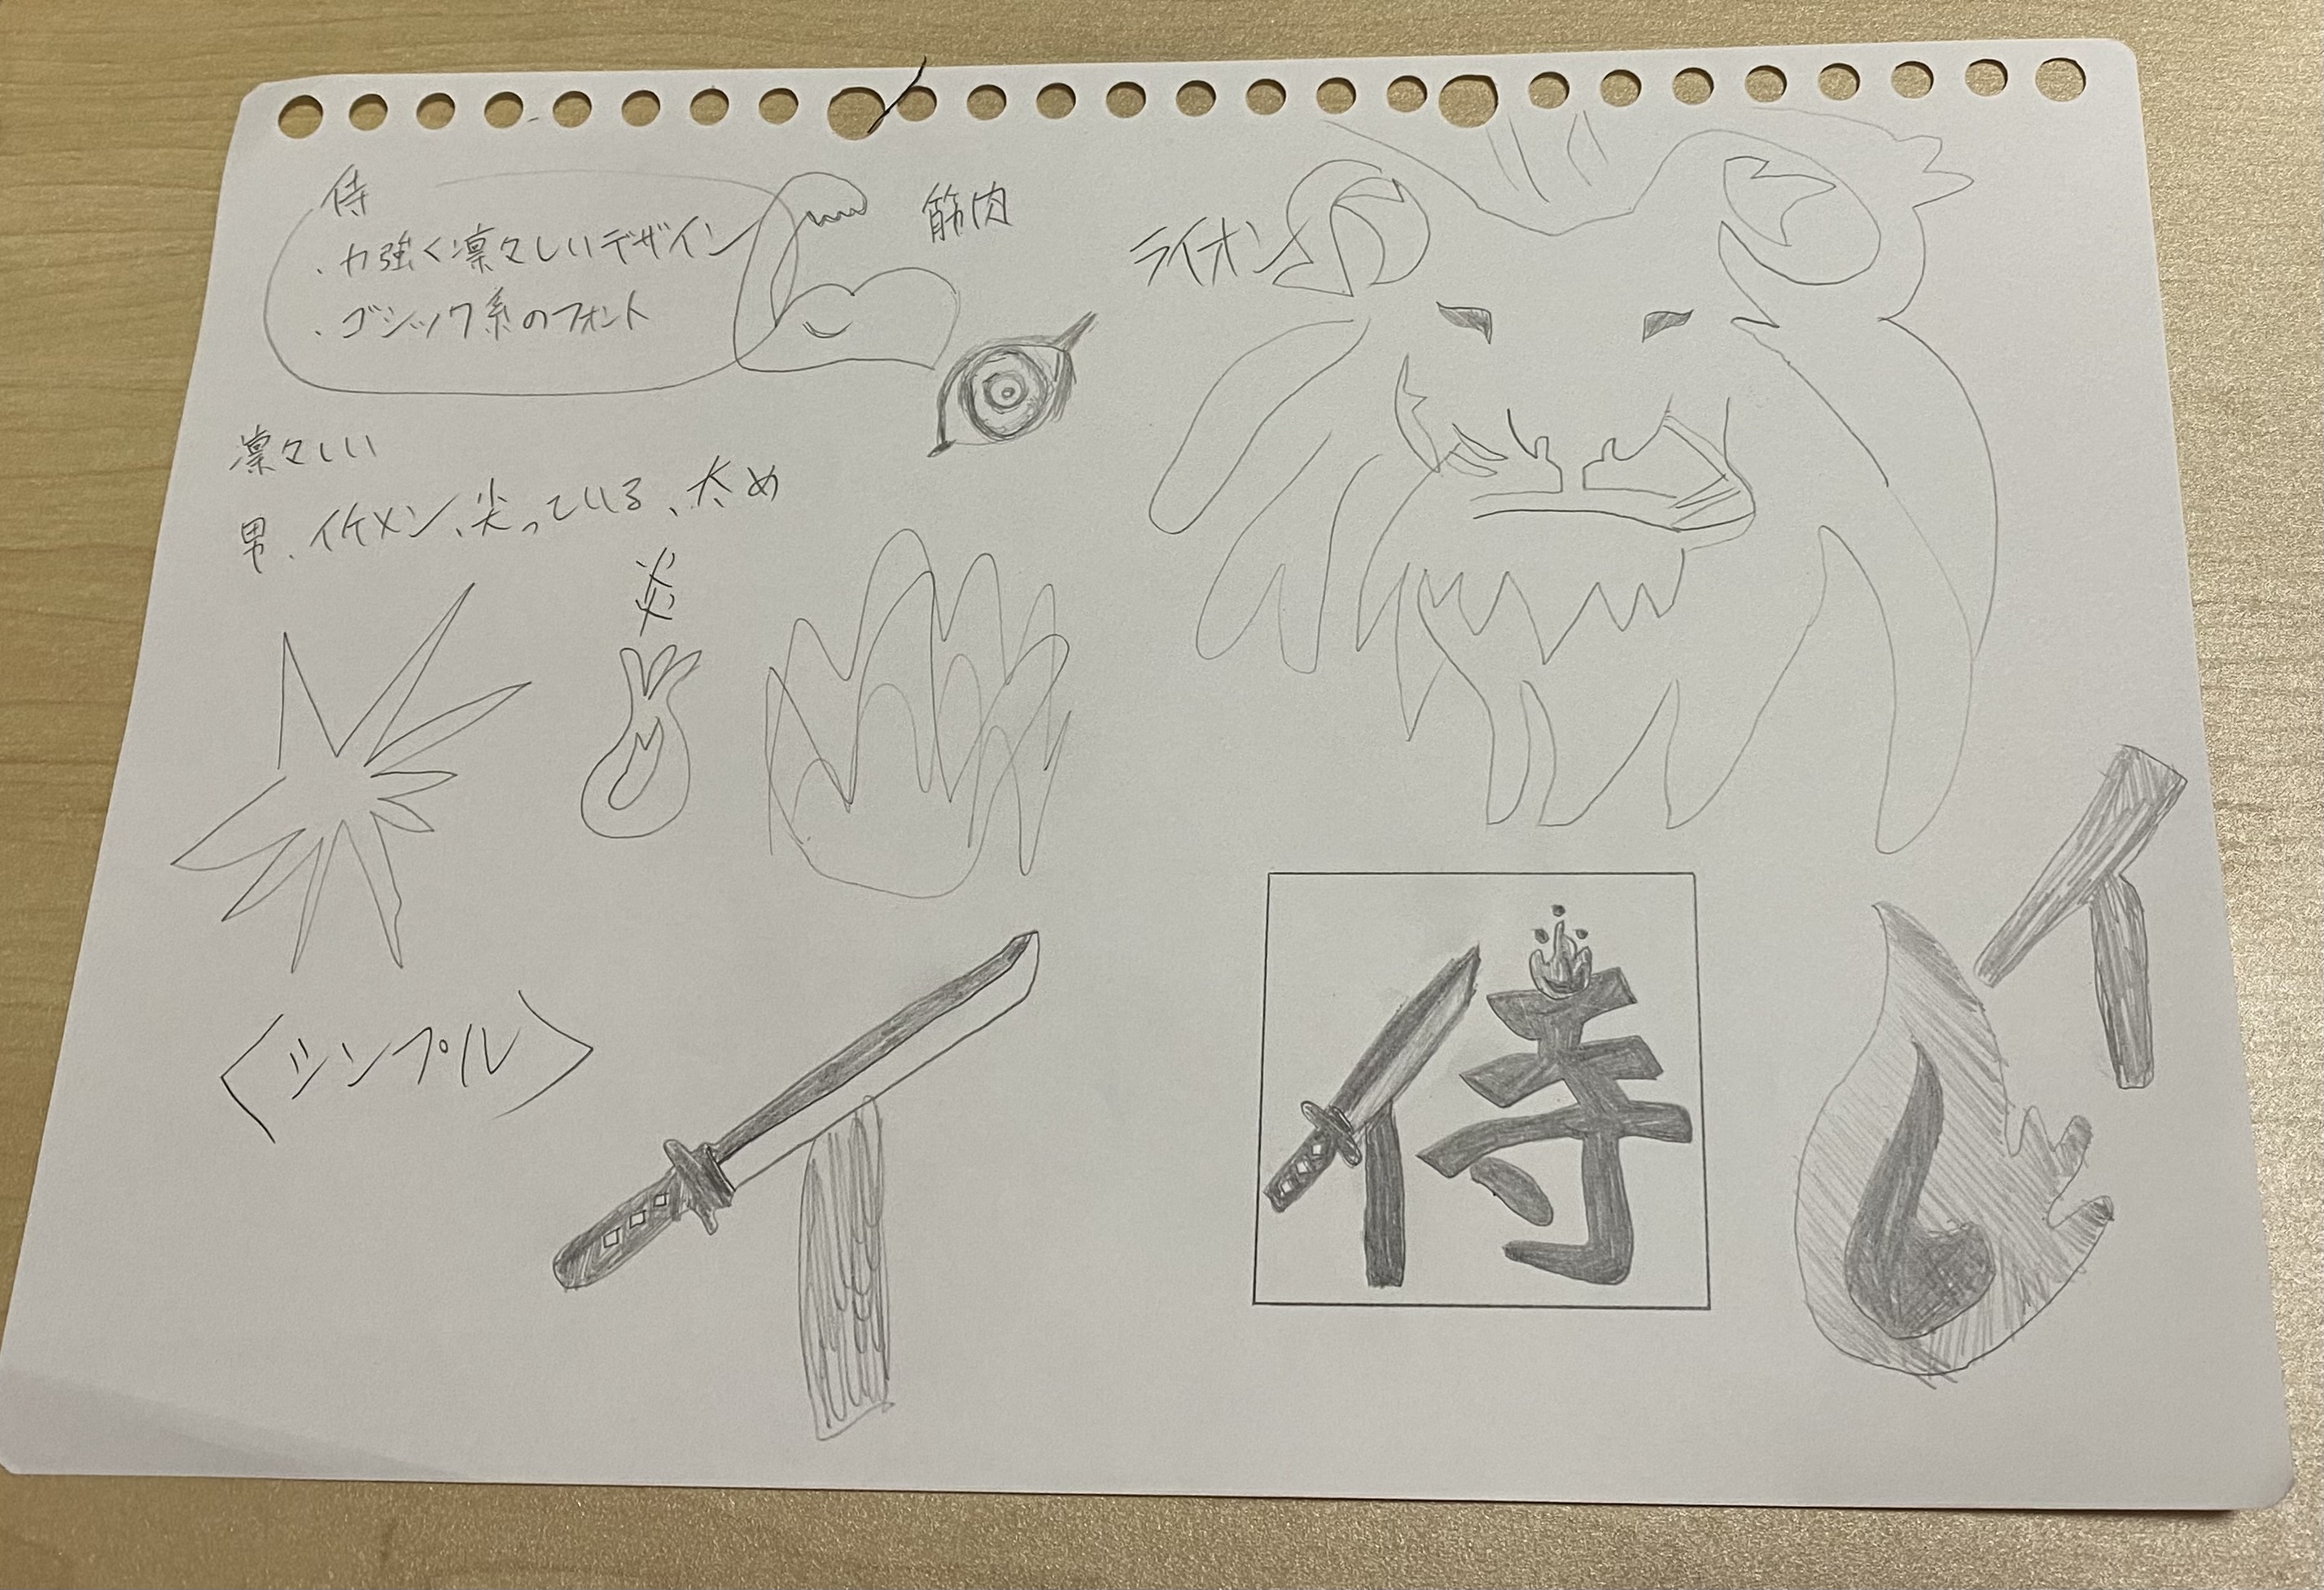 侍
・力強く凛々しいデザイン
・ゴシック系のフォント
筋肉
ライオン
凛々しい
男、イケメン、尖っている、太め
炎
〈シンプル〉
侍
イ